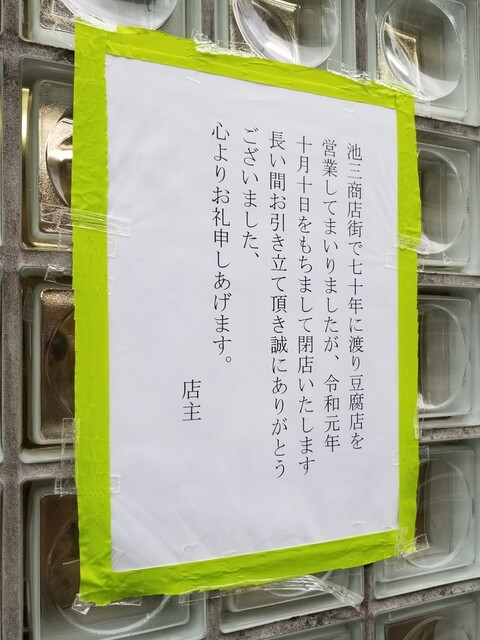 池三商店街で七十年に渡り豆腐店を
営業してまいりましたが、令和元年
十月十日をもちまして閉店いたします
長い間お引き立て頂き誠にありがとう
ございました、
心よりお礼申しあげます。
店主